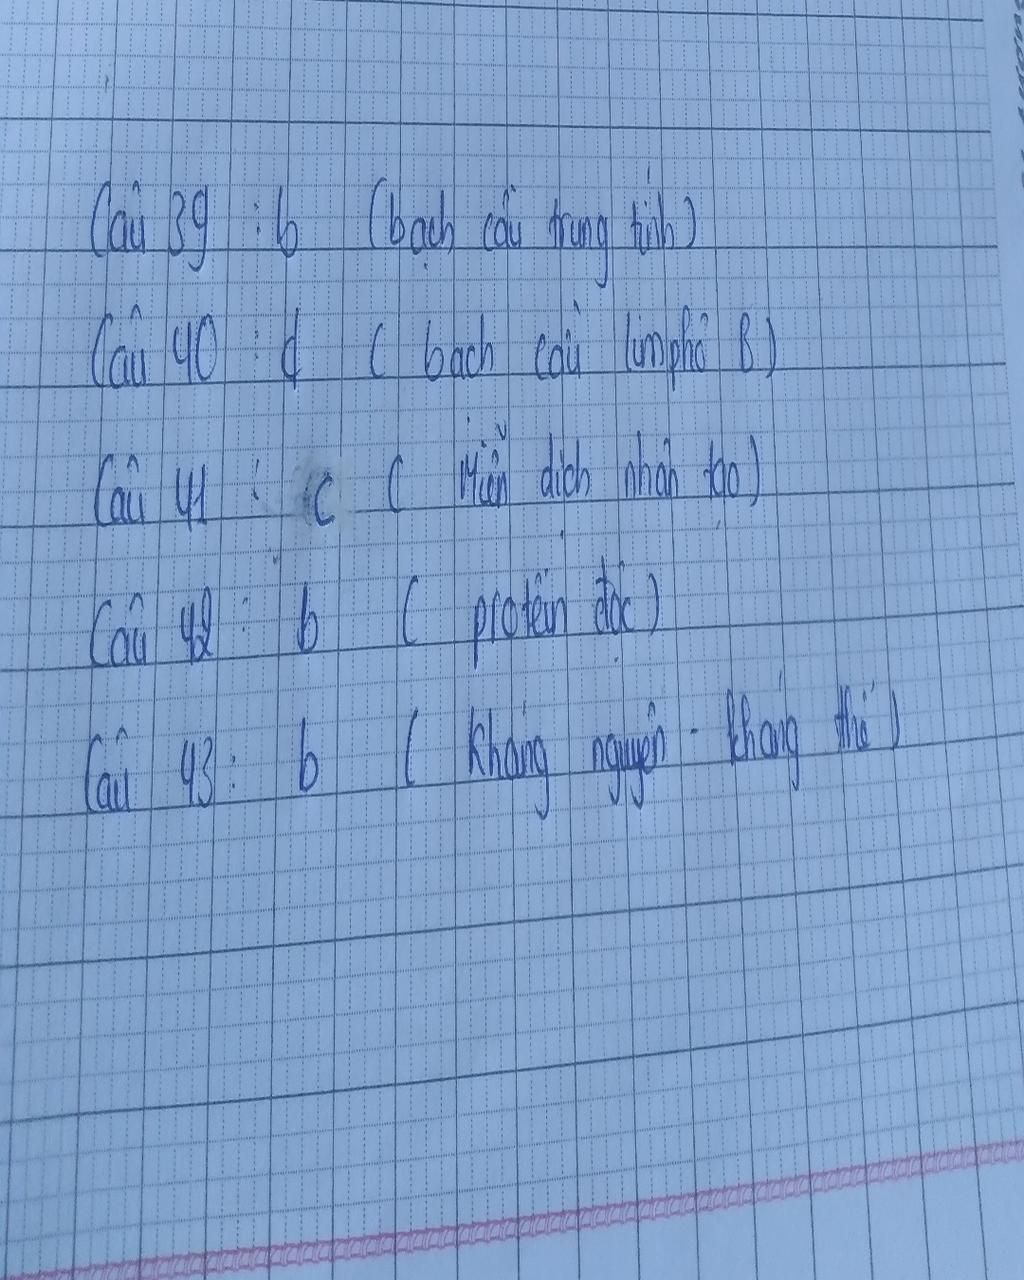 Câu 39 : b (bạch cầu trung tính)
Câu 40 : d ( bạch cầu limphô B)
Câu 41 : c ( Miễn dịch nhân tạo)
Câu 42 : b ( protêin độc)
Câu 43 : b ( Kháng nguyên - kháng thể )